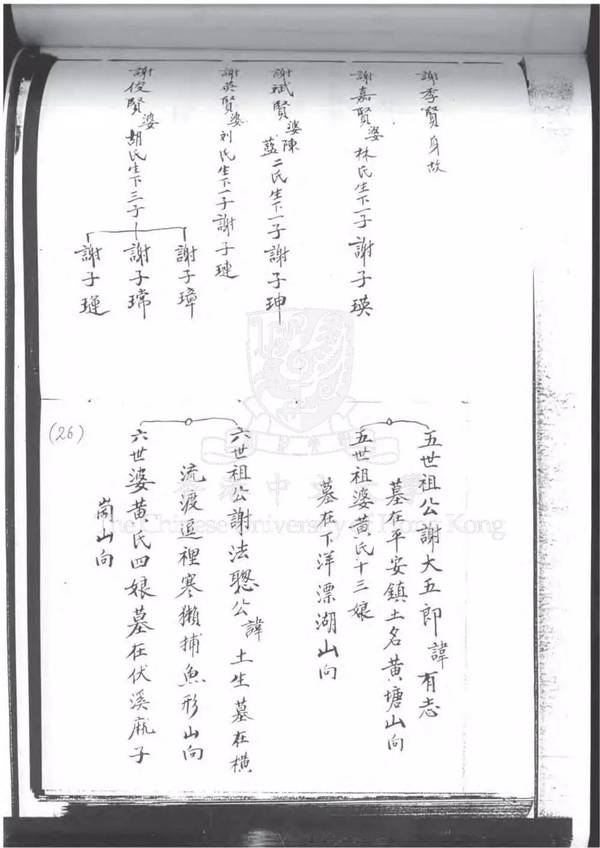 謝季賢身故
謝嘉賢婆林氏生下一子謝子瑛
謝斌賢婆陳藍二氏生下一子謝子珅
謝英賢婆刘氏生下一子謝子璉
謝俊賢婆胡氏生下三子
謝子璋
謝子瑺
謝子璉
五世祖公謝大五郎諱有志
墓在平安鎮土名黃塘山向
五世祖婆黃氏十三娘
墓在下洋漂湖山向
六世祖公謝法聰公諱土生墓在橫
流渡逕裡寒獺捕魚形山向
六世婆黃氏四娘墓在伏溪蔴子
崗山向
(26)
香港中文大學
The Chinese University of Hong Kong